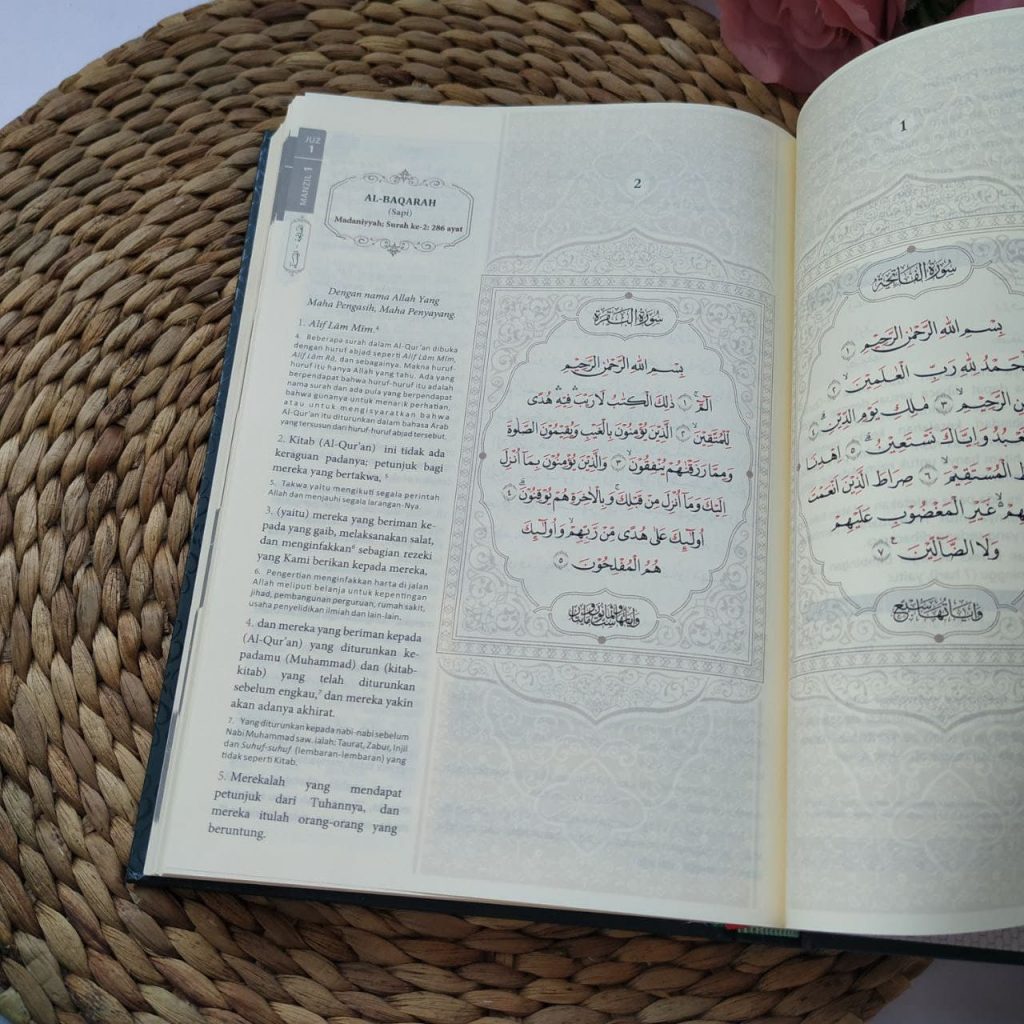 JUZ
1
MANZIL 1
AL-BAQARAH
(Sapi)
Madaniyyah; Surah ke-2: 286 ayat
Dengan nama Allah Yang
Maha Pengasih, Maha Penyayang.
1. Alif Lām Mīm.⁴
4. Beberapa surah dalam Al-Qur'an dibuka
dengan huruf abjad seperti Alif Lām Mīm,
Alif Lām Rā, dan sebagainya. Makna huruf-
huruf itu hanya Allah yang tahu. Ada yang
berpendapat bahwa huruf-huruf itu adalah
nama surah dan ada pula yang berpendapat
bahwa gunanya untuk menarik perhatian,
atau untuk mengisyaratkan bahwa
Al-Qur'an itu diturunkan dalam bahasa Arab
yang tersusun dari huruf-huruf abjad tersebut.
2. Kitab (Al-Qur'an) ini tidak ada
keraguan padanya; petunjuk bagi
mereka yang bertakwa, ⁵
5. Takwa yaitu mengikuti segala perintah
Allah dan menjauhi segala larangan-Nya
3. (yaitu) mereka yang beriman ke-
pada yang gaib, melaksanakan salat,
dan menginfakkan⁶ sebagian rezeki
yang Kami berikan kepada mereka,
6. Pengertian menginfakkan harta di jalan
Allah meliputi belanja untuk kepentingan
jihad, pembangunan perguruan, rumah sakit,
usaha penyelidikan ilmiah dan lain-lain.
4. dan mereka yang beriman kepada
(Al-Qur'an) yang diturunkan ke-
padamu (Muhammad) dan (kitab-
kitab) yang telah diturunkan
sebelum engkau,⁷ dan mereka yakin
akan adanya akhirat.
7. Yang diturunkan kepada nabi-nabi sebelum
Nabi Muhammad saw. ialah: Taurat, Zabur, Injil
dan Suhuf-suhuf (lembaran-lembaran) yang
tidak seperti Kitab.
5. Merekalah yang mendapat
petunjuk dari Tuhannya, dan
mereka itulah orang-orang yang
beruntung.
2
سُوْرَةُ الْبَقَرَةِ
بِسْمِ اللهِ الرَّحْمٰنِ الرَّحِيْمِ
الۤمّۤ ۚ ١ ذٰلِكَ الْكِتٰبُ لَا رَيْبَ ۛ فِيْهِ ۛ هُدًى
لِّلْمُتَّقِيْنَۙ ٢ الَّذِيْنَ يُؤْمِنُوْنَ بِالْغَيْبِ وَيُقِيْمُوْنَ الصَّلٰوةَ
وَمِمَّا رَزَقْنٰهُمْ يُنْفِقُوْنَۙ ٣ وَالَّذِيْنَ يُؤْمِنُوْنَ بِمَآ اُنْزِلَ
اِلَيْكَ وَمَآ اُنْزِلَ مِنْ قَبْلِكَۚ وَبِالْاٰخِرَةِ هُمْ يُوْقِنُوْنَۗ ٤
اُولٰۤىِٕكَ عَلٰى هُدًى مِّنْ رَّبِّهِمْۙ وَاُولٰۤىِٕكَ
هُمُ الْمُفْلِحُوْنَ ٥
1
سُوْرَةُ الْفَاتِحَةِ
بِسْمِ اللهِ الرَّحْمٰنِ الرَّحِيْمِ ١
لْحَمْدُ لِلّٰهِ رَبِّ الْعٰلَمِيْنَۙ ٢
نِ الرَّحِيْمِۙ ٣ مٰلِكِ يَوْمِ الدِّيْنِۗ ٤
نَعْبُدُ وَاِيَّاكَ نَسْتَعِيْنُۗ ٥ اِهْدِنَا
طَ الْمُسْتَقِيْمَۙ ٦ صِرَاطَ الَّذِيْنَ اَنْعَمْتَ
هِمْ ۙ غَيْرِ الْمَغْضُوْبِ عَلَيْهِمْ
وَلَا الضَّاۤلِّيْنَ ٧
وَاٰيَاتُهَا سَبْعٌ